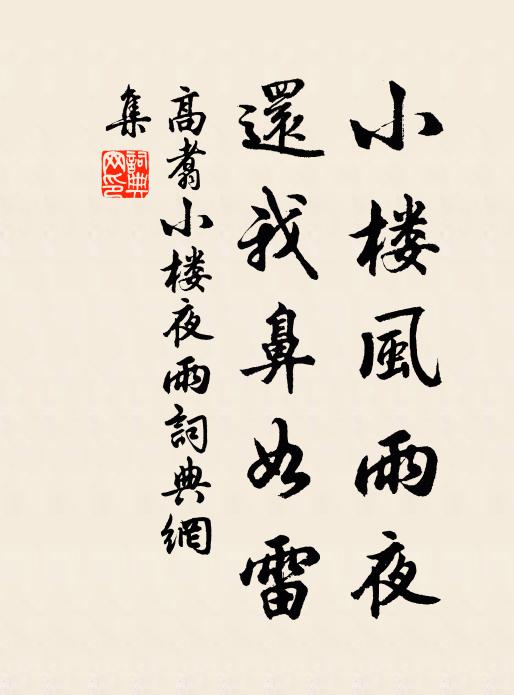 小楼風雨夜
還我鼻如雷
高翥小楼夜雨詞典網
集
詞典
网印